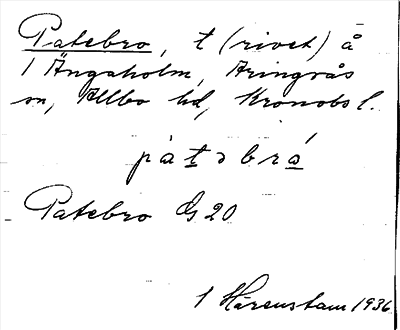 Patebro, t (rivet) å
1 Ängaholm, Aringsås
sn, Allbo hd, Kronobs l.
pàtəbrá
Patebro G 20
1 Härenstam 1936